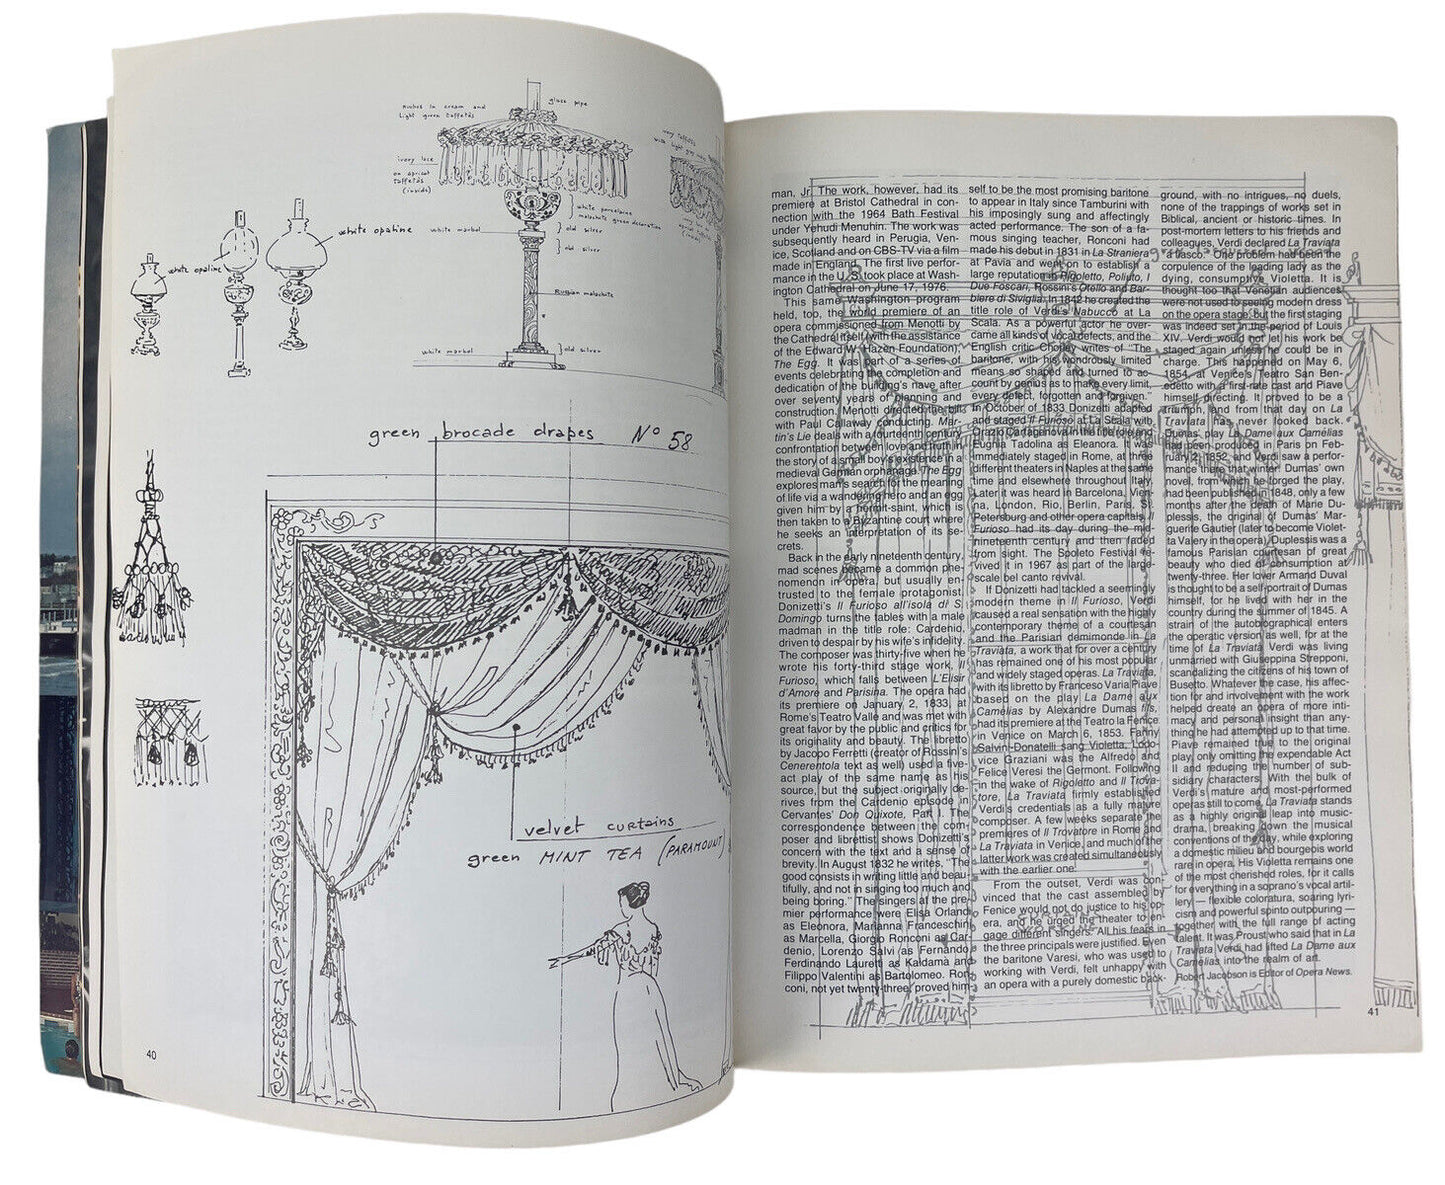 Ruches in cream and
light green taffetas
glass pipe
ivory lace
on apricot
taffetas
(inside)
ivory taffetas
(inside)
white porcelaine
malachite green decoration
white marbel
old silver
old silver
Russian malachite
white marbel
old silver
white opaline
white opaline
green brocade drapes No 58
velvet curtains
green MINT TEA (PARAMOUNT)
40
man, Jr. The work, however, had its
premiere at Bristol Cathedral in con-
nection with the 1964 Bath Festival
under Yehudi Menuhin. The work was
subsequently heard in Perugia, Ven-
ice, Scotland and on CBS-TV via a film
made in England. The first live perfor-
mance in the U.S. took place at Wash-
ington Cathedral on June 17, 1976.
This same Washington program
held, too, the world premiere of an
opera commissioned from Menotti by
the Cathedral itself (with the assistance
of the Edward W. Hazen Foundation),
The Egg. It was part of a series of
events celebrating the completion and
dedication of the building's nave after
over seventy years of planning and
construction. Menotti directed the bill,
with Paul Callaway conducting. Mar-
tin's Lie dealt with a fourteenth century
confrontation between love and truth in
the story of a small boy's existence in a
medieval German orphanage. The Egg
explores man's search for the meaning
of life via a wandering hero and an egg
given him by a hermit-saint, which is
then taken to a Byzantine court where
he seeks an interpretation of its se-
crets.
Back in the early nineteenth century,
mad scenes became a common phe-
nomenon in opera, but usually en-
trusted to the female protagonist.
Donizetti's Il Furioso all'isola di S.
Domingo turns the tables with a male
madman in the title role: Cardenio,
driven to despair by his wife's infidelity.
The composer was thirty-five when he
wrote his forty-third stage work, Il
Furioso, which falls between L'Elisir
d'Amore and Parisina. The opera had
its premiere on January 2, 1833, at
Rome's Teatro Valle and was met with
great favor by the public and critics for
its originality and beauty. The libretto
by Jacopo Ferretti (creator of Rossini's
Cenerentola text as well) used a five-
act play of the same name as his
source, but the subject originally de-
rives from the Cardenio episode in
Cervantes' Don Quixote, Part I. The
correspondence between the com-
poser and librettist shows Donizetti's
concern with the text and a sense of
brevity. In August 1832 he writes, "The
good consists in writing little and beau-
tifully, and not in singing too much and
being boring." The singers at the pre-
mier performance were Elisa Orlandi
as Eleonora, Marianna Franceschini
as Marcella, Giorgio Ronconi as Car-
denio, Lorenzo Salvi as Fernando,
Ferdinando Lauretti as Kaldama and
Filippo Valentini as Bartolomeo. Ron-
coni, not yet twenty-three, proved him-
self to be the most promising baritone
to appear in Italy since Tamburini with
his imposingly sung and affectingly
acted performance. The son of a fa-
mous singing teacher, Ronconi had
made his debut in 1831 in La Straniera
at Pavia and went on to establish a
large reputation in Rigoletto, Poliuto, I
Due Foscari, Rossini's Otello and Bar-
biere di Siviglia. In 1842 he created the
title role of Verdi's Nabucco at La
Scala. As a powerful actor he over-
came all kinds of vocal defects, and the
English critic Chorley writes of "The
baritone, with his wondrously limited
means so sharply as turned to ac-
count by genius as to make every limit,
every defect, forgotten and forgiven."
In October of 1833 Donizetti adapted
and staged Il Furioso at La Scala with
Orazio Cartagenova in the title role and
Eugenia Tadolina as Eleanora. It was
immediately staged in Rome, at three
different theaters in Naples at the same
time and elsewhere throughout Italy.
Later it was heard in Barcelona, Vien-
na, London, Rio, Berlin, Paris, St.
Petersburg and other opera capitals. Il
Furioso had its day during the mid-
nineteenth century and then faded
from sight. The Spoleto Festival re-
vived it in 1967 as part of the large-
scale bel canto revival.
If Donizetti had tackled a seemingly
modern theme in Il Furioso, Verdi
caused a real sensation with the highly
contemporary theme of a courtesan
and the Parisian demimonde in La
Traviata, a work that for over a century
has remained one of his most popular
and widely staged operas. La Traviata,
with its libretto by Franceso Varia Piave
based on the play La Dame aux
Camélias by Alexandre Dumas fils,
had its premiere at the Teatro la Fenice
in Venice on March 6, 1853. Fanny
Salvini-Donatelli sang Violetta, Lodo-
vice Graziani was the Alfredo and
Felice Veresi the Germont. Following
in the wake of Rigoletto and Il Trova-
tore, La Traviata firmly established
Verdi's credentials as a fully mature
composer. A few weeks separate the
premieres of Il Trovatore in Rome and
La Traviata in Venice, and much of the
latter work was created simultaneously
with the earlier one.
From the outset, Verdi was con-
vinced that the cast assembled by
Fenice would not do justice to his op-
era, and he urged the theater to en-
gage different singers. All his fears in
the three principals were justified. Even
the baritone Varesi, who was used to
working with Verdi, felt unhappy with
an opera with a purely domestic back-
ground, with no intrigues, no duels,
none of the trappings of works set in
Biblical, ancient or historic times. In
post-mortem letters to his friends and
colleagues, Verdi declared La Traviata
"a fiasco." One problem had been the
corpulence of the leading lady as the
dying, consumptive Violetta. It is
thought too that Venetian audiences
were not used to seeing modern dress
on the opera stage, but the first staging
was indeed set in the period of Louis
XIV. Verdi would not let his work be
staged again until he could be in
charge. This happened on May 6,
1854, at Venice's Teatro San Ben-
edetto with a first-rate cast and Piave
himself directing. It proved to be a
triumph, and from that day on La
Traviata has never looked back.
Dumas' play La Dame aux Camélias
had been produced in Paris on Feb-
ruary 2, 1852, and Verdi saw a perfor-
mance there that winter. Dumas' own
novel, from which he forged the play,
had been published in 1848, only a few
months after the death of Marie Du-
plessis, the original of Dumas' Mar-
guerite Gautier (later to become Violet-
ta Valery in the opera). Duplessis was a
famous Parisian courtesan of great
beauty who died of consumption at
twenty-three. Her lover Armand Duval
is thought to be a self-portrait of Dumas
himself, for he lived with her in the
country during the summer of 1845. A
strain of the autobiographical enters
the operatic version as well, for at the
time of La Traviata Verdi was living
unmarried with Giuseppina Strepponi,
scandalizing the citizens of his town of
Busetto. Whatever the case, his affec-
tion for and involvement with the work
helped create an opera of more inti-
macy and personal insight than any-
thing he had attempted up to that time.
Piave remained true to the original
play, only omitting the expendable Act
II and reducing the number of sub-
sidiary characters. With the bulk of
Verdi's mature and most-performed
operas still to come, La Traviata stands
as a highly original leap into music-
drama, breaking down the musical
conventions of the day, while exploring
a domestic milieu and bourgeois world
rare in opera. His Violetta remains one
of the most cherished roles, for it calls
for everything in a soprano's vocal artil-
lery — flexible coloratura, soaring lyri-
cism and powerful spinto outpouring —
together with the full range of acting
talent. It was Proust who said that in La
Traviata Verdi had lifted La Dame aux
Camélias into the realm of art.
Robert Jacobson is Editor of Opera News.
41